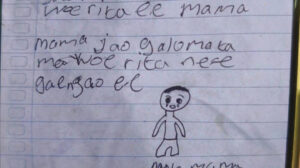 woe rita ele mama
mama jao galomaka
ma woe rita nese
gaengao ele